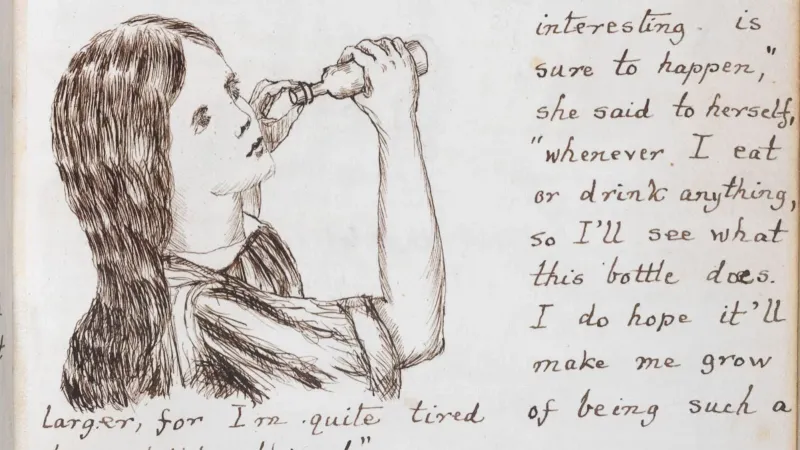 interesting is
sure to happen,"
she said to herself,
"whenever I eat
or drink anything,
so I'll see what
this bottle does.
I do hope it'll
make me grow
larger, for I'm quite tired
of being such a